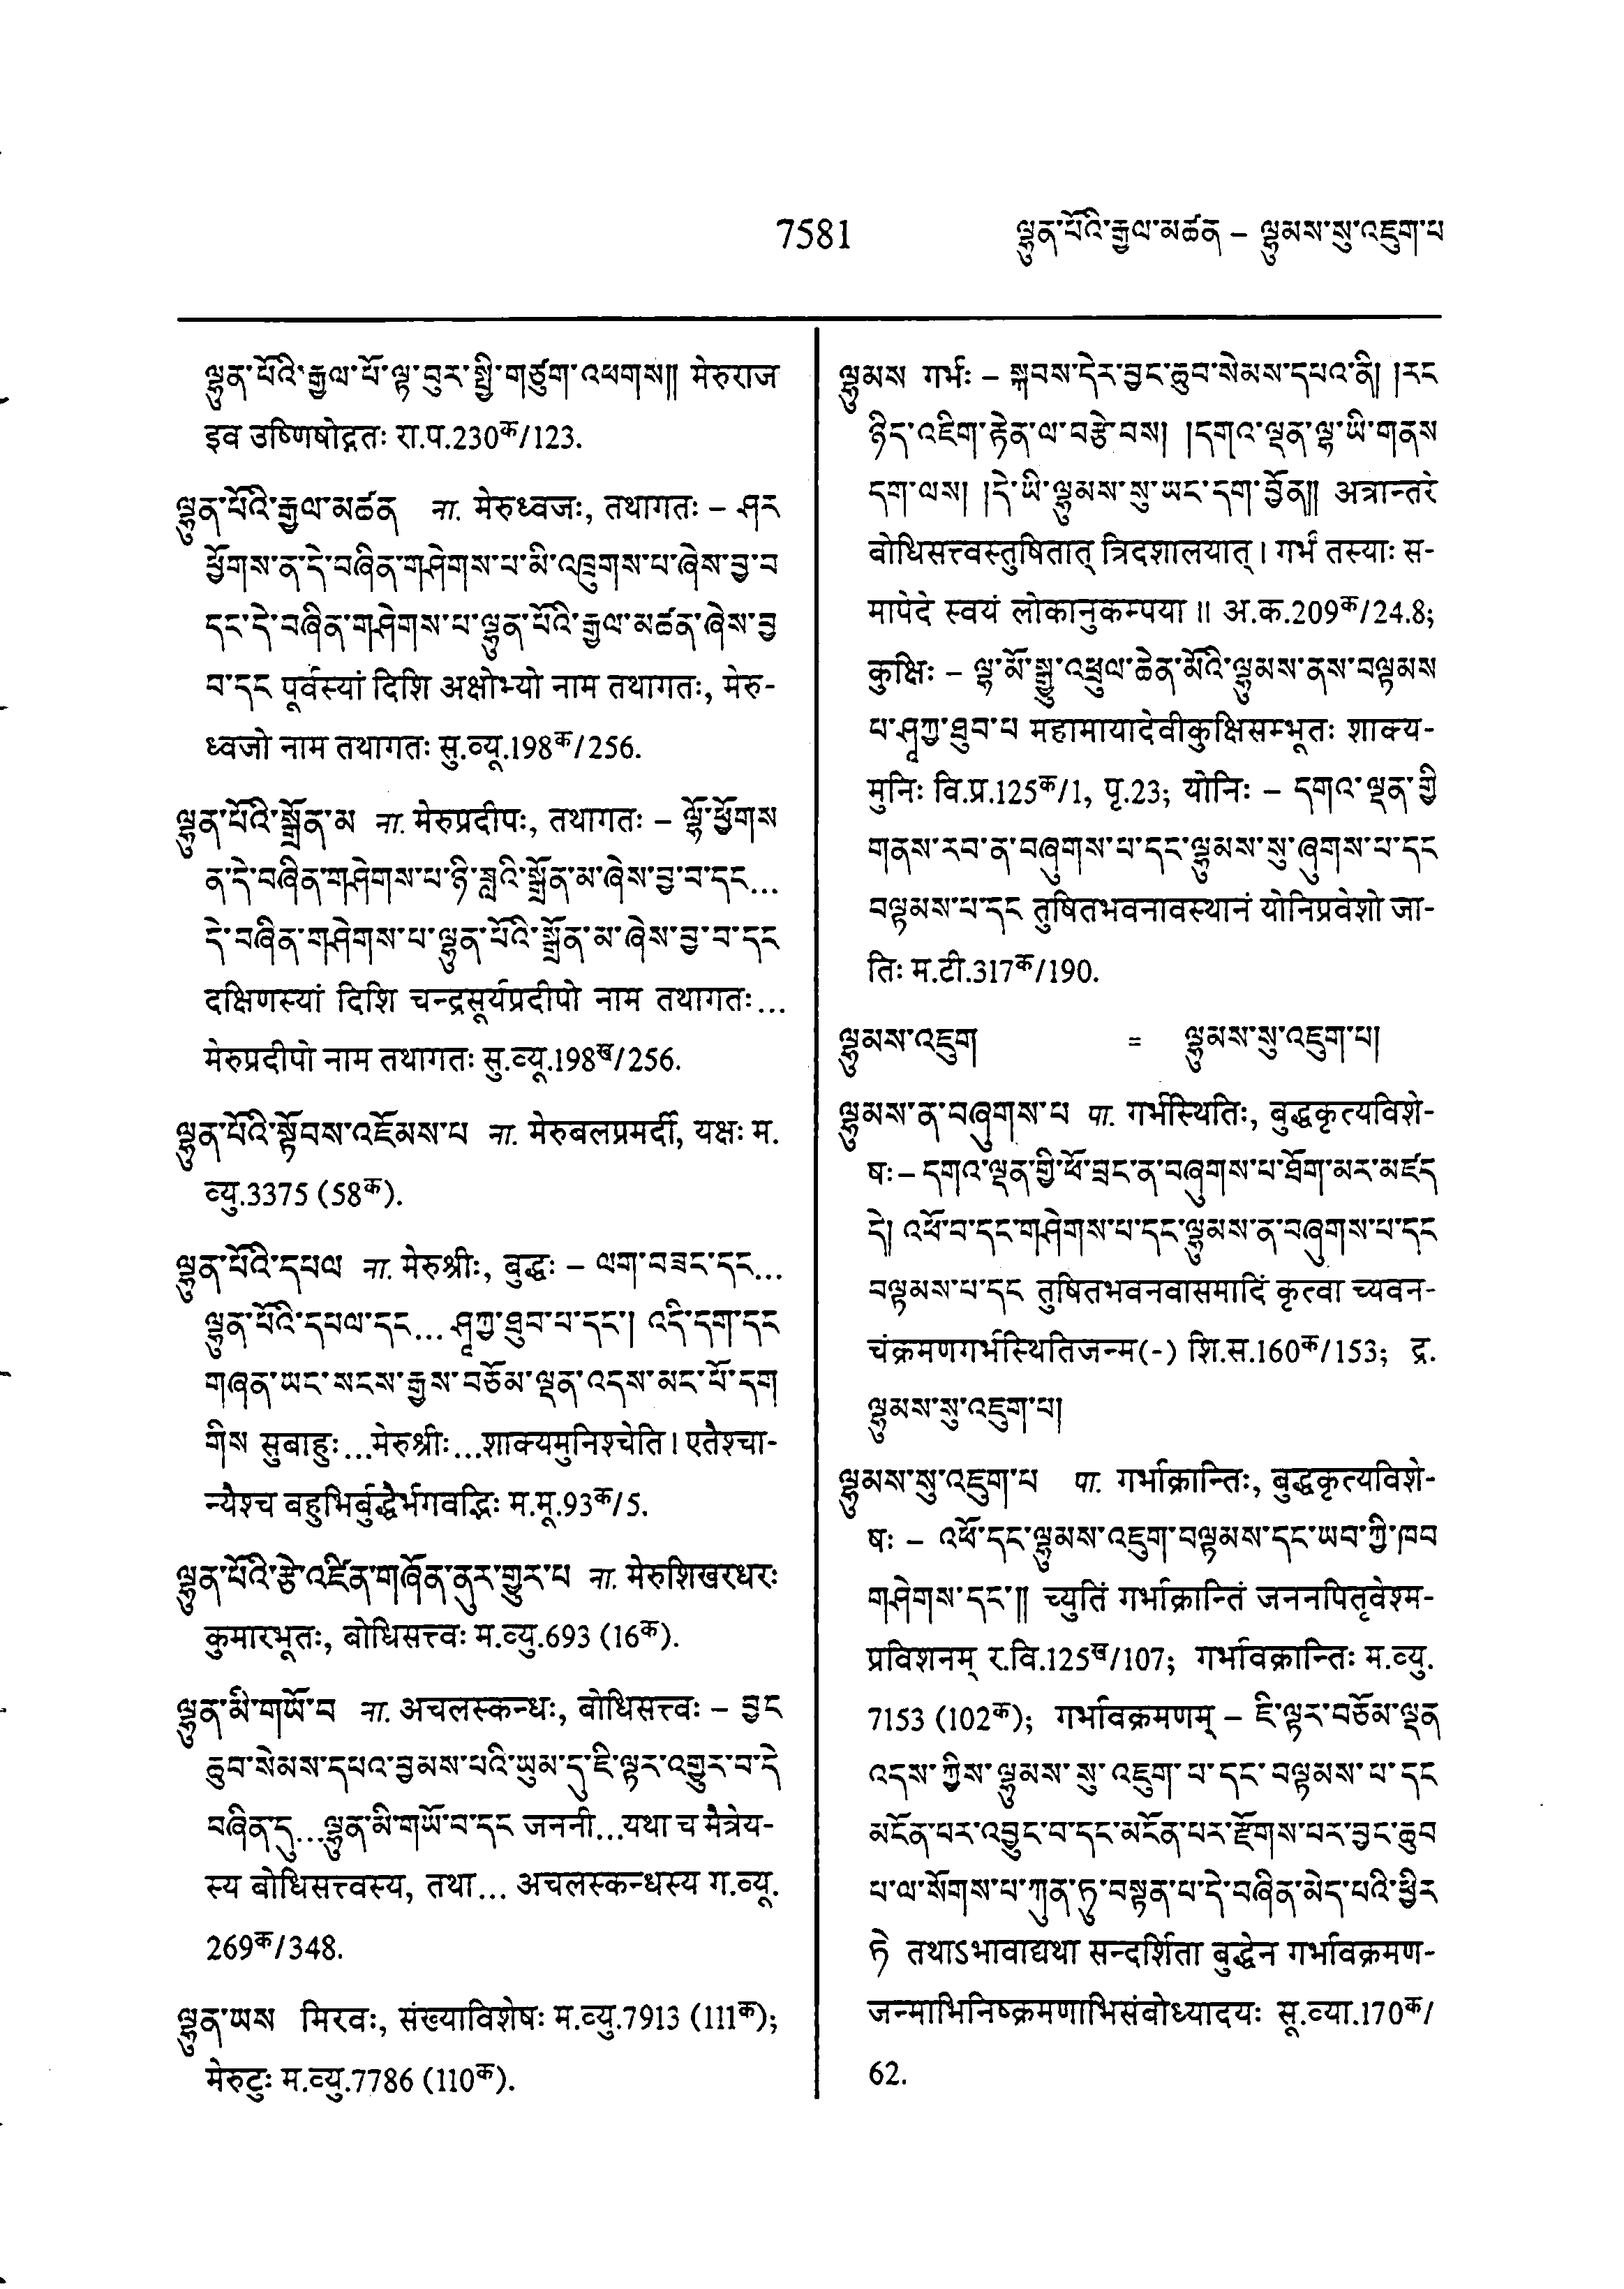 7581
ལྷུན་པོའི་རྒྱལ་མཚན – ལྷུམས་སུ་འཇུག་པ
ལྷུན་པོའི་རྒྱལ་པོ་ལྟ་བུར་སྤྱི་གཙུག་འཕགས།། मेरुराज
इव उष्णिषोद्गतः रा.प.230क/123.
ལྷུན་པོའི་རྒྱལ་མཚན ना. मेरुध्वजः, तथागतः – ཤར
ཕྱོགས་ན་དེ་བཞིན་གཤེགས་པ་མི་འཁྲུགས་པ་ཞེས་བྱ་བ
དང་དེ་བཞིན་གཤེགས་པ་ལྷུན་པོའི་རྒྱལ་མཚན་ཞེས་བྱ
བ་དང पूर्वस्यां दिशि अक्षोभ्यो नाम तथागतः, मेरु-
ध्वजो नाम तथागतः सु.व्यू.198क/256.
ལྷུན་པོའི་སྒྲོན་མ ना. मेरुप्रदीपः, तथागतः – ལྷོ་ཕྱོགས
ན་དེ་བཞིན་གཤེགས་པ་ཉི་ཟླའི་སྒྲོན་མ་ཞེས་བྱ་བ་དང...
དེ་བཞིན་གཤེགས་པ་ལྷུན་པོའི་སྒྲོན་མ་ཞེས་བྱ་བ་དང
दक्षिणस्यां दिशि चन्द्रसूर्यप्रदीपो नाम तथागतः...
मेरुप्रदीपो नाम तथागतः सु.व्यू.198ख/256.
ལྷུན་པོའི་སྟོབས་འཇོམས་པ ना. मेरुबलप्रमर्दी, यक्षः म.
व्यु.3375 (58क).
ལྷུན་པོའི་དཔལ ना. मेरुश्रीः, बुद्धः – ལག་བཟང་དང...
ལྷུན་པོའི་དཔལ་དང... ཤཱཀྱ་ཐུབ་པ་དང་། འདི་དག་དང
གཞན་ཡང་སངས་རྒྱས་བཅོམ་ལྡན་འདས་མང་པོ་དག
གིས सुबाहुः...मेरुश्रीः...शाक्यमुनिश्चेति। एतैश्चा-
न्यैश्च बहुभिर्बुद्धैर्भगवद्भिः म.मू.93क/5.
ལྷུན་པོའི་རྩེ་འཛིན་གཞོན་ནུར་གྱུར་པ ना. मेरुशिखरधरः
कुमारभूतः, बोधिसत्त्वः म.व्यु.693 (16क).
ལྷུན་མི་གཡོ་བ ना. अचलस्कन्धः, बोधिसत्त्वः – བྱང
ཆུབ་སེམས་དཔའ་བྱམས་པའི་ཡུམ་དུ་ཇི་ལྟར་འགྱུར་བ་དེ
བཞིན་དུ...ལྷུན་མི་གཡོ་བ་དང जननी...यथा च मैत्रेय-
स्य बोधिसत्त्वस्य, तथा... अचलस्कन्धस्य ग.व्यू.
269क/348.
ལྷུན་ཡས मिरवः, संख्याविशेषः म.व्यु.7913 (111क);
मेरुटुः म.व्यु.7786 (110क).
ལྷུམས गर्भः – སྐབས་དེར་བྱང་ཆུབ་སེམས་དཔའ་ནི། །རང
ཉིད་འཇིག་རྟེན་ལ་བརྩེ་བས། །དགའ་ལྡན་ལྷ་ཡི་གནས
དག་ལས། །དེ་ཡི་ལྷུམས་སུ་ཡང་དག་བྱོན།། अत्रान्तरे
बोधिसत्त्वस्तुषितात् त्रिदशालयात्। गर्भं तस्याः स-
मापेदे स्वयं लोकानुकम्पया॥ अ.क.209क/24.8;
कुक्षिः – ལྷ་མོ་སྒྱུ་འཕྲུལ་ཆེན་མོའི་ལྷུམས་ནས་བལྟམས
པ་ཤཱཀྱ་ཐུབ་པ महामायादेवीकुक्षिसम्भूतः शाक्य-
मुनिः वि.प्र.125क/1, पृ.23; योनिः – དགའ་ལྡན་གྱི
གནས་རབ་ན་བཞུགས་པ་དང་ལྷུམས་སུ་ཞུགས་པ་དང
བལྟམས་པ་དང तुषितभवनावस्थानं योनिप्रवेशो जा-
तिः म.टी.317क/190.
ལྷུམས་འཇུག = ལྷུམས་སུ་འཇུག་པ།
ལྷུམས་ན་བཞུགས་པ पा. गर्भस्थितिः, बुद्धकृत्यविशे-
षः – དགའ་ལྡན་གྱི་ཕོ་བྲང་ན་བཞུགས་པ་ཐོག་མར་མཛད
དེ། འཕོ་བ་དང་གཤེགས་པ་དང་ལྷུམས་ན་བཞུགས་པ་དང
བལྟམས་པ་དང तुषितभवनवासमादिं कृत्वा च्यवन-
चंक्रमणगर्भस्थितिजन्म(-) शि.स.160क/153; द्र.
ལྷུམས་སུ་འཇུག་པ།
ལྷུམས་སུ་འཇུག་པ पा. गर्भाक्रान्तिः, बुद्धकृत्यविशे-
षः – འཕོ་དང་ལྷུམས་འཇུག་བལྟམས་དང་ཡབ་ཀྱི་ཁབ
གཤེགས་དང་།། च्युतिं गर्भाक्रान्तिं जननपितृवेश्म-
प्रविशनम् र.वि.125ख/107; गर्भावक्रान्तिः म.व्यु.
7153 (102क); गर्भावक्रमणम् – ཇི་ལྟར་བཅོམ་ལྡན
འདས་ཀྱིས་ལྷུམས་སུ་འཇུག་པ་དང་བལྟམས་པ་དང
མངོན་པར་འབྱུང་བ་དང་མངོན་པར་རྫོགས་པར་བྱང་ཆུབ
པ་ལ་སོགས་པ་ཀུན་ཏུ་བསྟན་པ་དེ་བཞིན་མེད་པའི་ཕྱིར
ཏེ तथाऽभावाद्यथा सन्दर्शिता बुद्धेन गर्भावक्रमण-
जन्माभिनिष्क्रमणाभिसंबोध्यादयः सू.व्या.170क/
62.